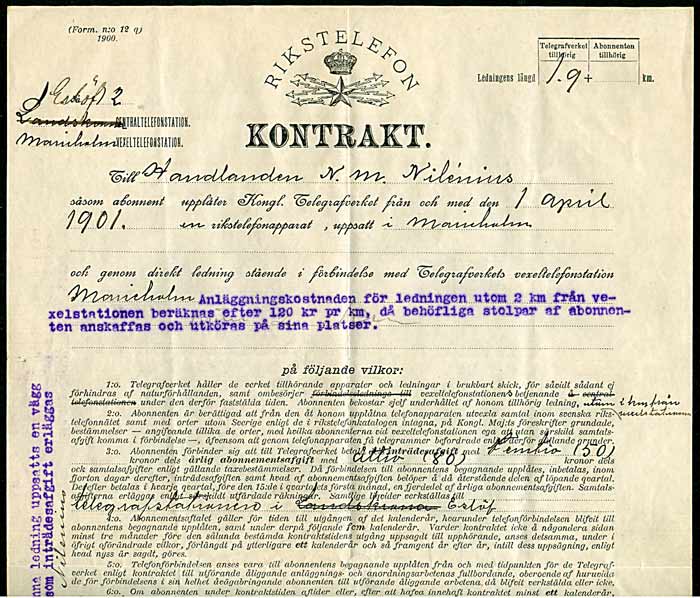 (Form. n:o 12 q)
1900.
RIKSTELEFON
KONTRAKT.
Telegrafverket tillhörig
Abonnenten tillhörig
Ledningens längd 1.9 + km.
Eslöf 2
Landskrona CENTRALTELEFONSTATION.
Marieholm VEXELTELEFONSTATION.
Till Handlanden N. M. Nilénius
såsom abonnent upplåter Kongl. Telegrafverket från och med den 1 April
1901. en rikstelefonapparat, uppsatt i Marieholm
och genom direkt ledning stående i förbindelse med Telegrafverkets vexeltelefonstation
Marieholm Anläggningskostnaden för ledningen utom 2 km från ve-
xelstationen beräknas efter 120 kr pr km, då behöfliga stolpar af abonnen-
ten anskaffas och utköras på sina platser.
på följande vilkor:
1:o. Telegrafverket håller de verket tillhörande apparater och ledningar i brukbart skick, för såvidt sådant ej
förhindras af naturförhållanden, samt ombesörjer förbindelseledninga till vexeltelefonstationens betjenande å central-
telefonstationen under den derför fastställda tiden. Abonnenten bekostar sjelf underhållet af honom tillhörig ledning, utom 1 km från
vexelstationen
2:o. Abonnenten är berättigad att från den åt honom upplåtna telefonapparaten utvexla samtal inom svenska riks-
telefonnätet samt med orter utom Sverige enligt de i rikstelefonkatalogen intagna, på Kongl. Majts föreskrifter grundade,
bestämmelser — angifvande tillika de orter, med hvilka abonnenterna vid vexeltelefonstationen ega att utan särskild samtals-
afgift komma i förbindelse —, äfvensom att genom telefonapparaten få telegrammer befordrade enligt derför gällande grunder.
3:o. Abonnenten förbinder sig att till Telegrafverket betala inträdesafgift med Femtio (50)
kronor dels årlig abonnementsafgift med Åttio (80) kronor dels
och samtalsafgifter enligt gällande taxebestämmelser. Då förbindelsen till abonnentens begagnande upplåtes, inbetalas, inom
fjorton dagar derefter, inträdesafgiften samt hvad af abonnementsafgiften belöper å då återstående delen af löpande qvartal.
Derefter betalas i hvarje qvartal, före den 15:de i qvartalets första månad, en fjerdedel af årliga abonnementsafgiften. Samtals-
afgifterna erläggas enligt särskildt utfärdade räkningar. Samtliga inbetalningar verkställas till
Telegrafstationen i Landskrona Eslöf
4:o. Abonnementsaftalet gäller för tiden till utgången af det kalenderår, hvarunder telefonförbindelsen blifvit till
abonnentens begagnande upplåten, samt under derpå följande fem kalenderår, i fall kontraktet icke å någondera sidan
minst tre månader före den sålunda bestämda kontraktstidens utgång uppsagdt till upphörande, anses detsamma, under i
öfrigt oförändrade vilkor, förlängdt på ytterligare ett kalenderår och så framgent år efter år, intill dess uppsägning, enligt
hvad nyss är sagdt, göres.
5:o. Telefonförbindelsen anses vara till abonnentens begagnande upplåten från och med tidpunkten för de Telegraf-
verket enligt kontraktet till utförande åliggande anläggnings- och anordningsarbetenas fullbordande, oberoende af huruvida
de för förbindelsens i sin helhet ändamålsenliga begagnande abonnenten till utförande åliggande arbeten, då blifvit verkställda eller icke.
6:o. Om abonnenten under kontraktstiden aflider eller, efter att hafva innehaft kontraktet minst ett kalenderår,
nna ledning uppsatts en vägg
som inträdesafgift erläggas
Nilénius